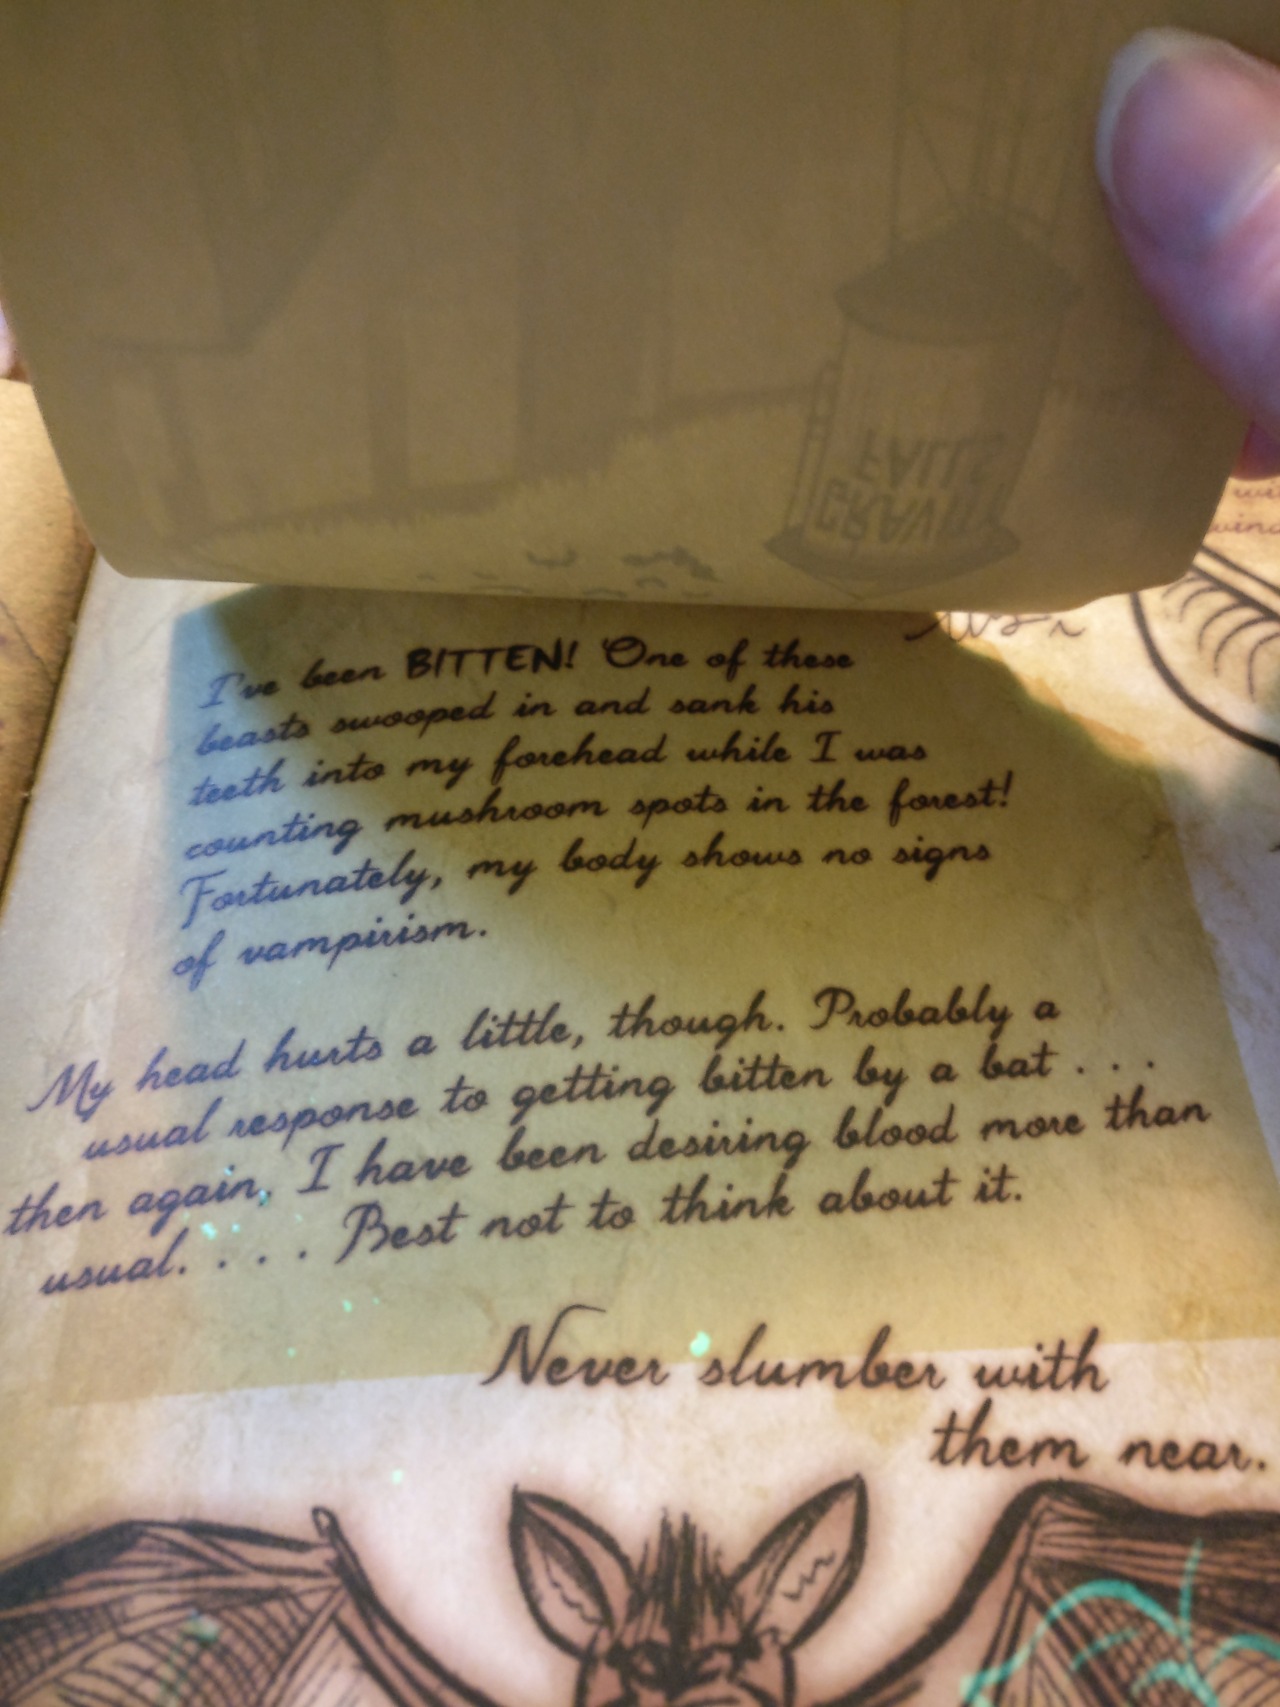 GRAVITY
FALLS
I've been BITTEN! One of these
beasts swooped in and sank his
teeth into my forehead while I was
counting mushroom spots in the forest!
Fortunately, my body shows no signs
of vampirism.
My head hurts a little, though. Probably a
usual response to getting bitten by a bat . . .
then again, I have been desiring blood more than
usual. . . . Best not to think about it.
Never slumber with
them near.